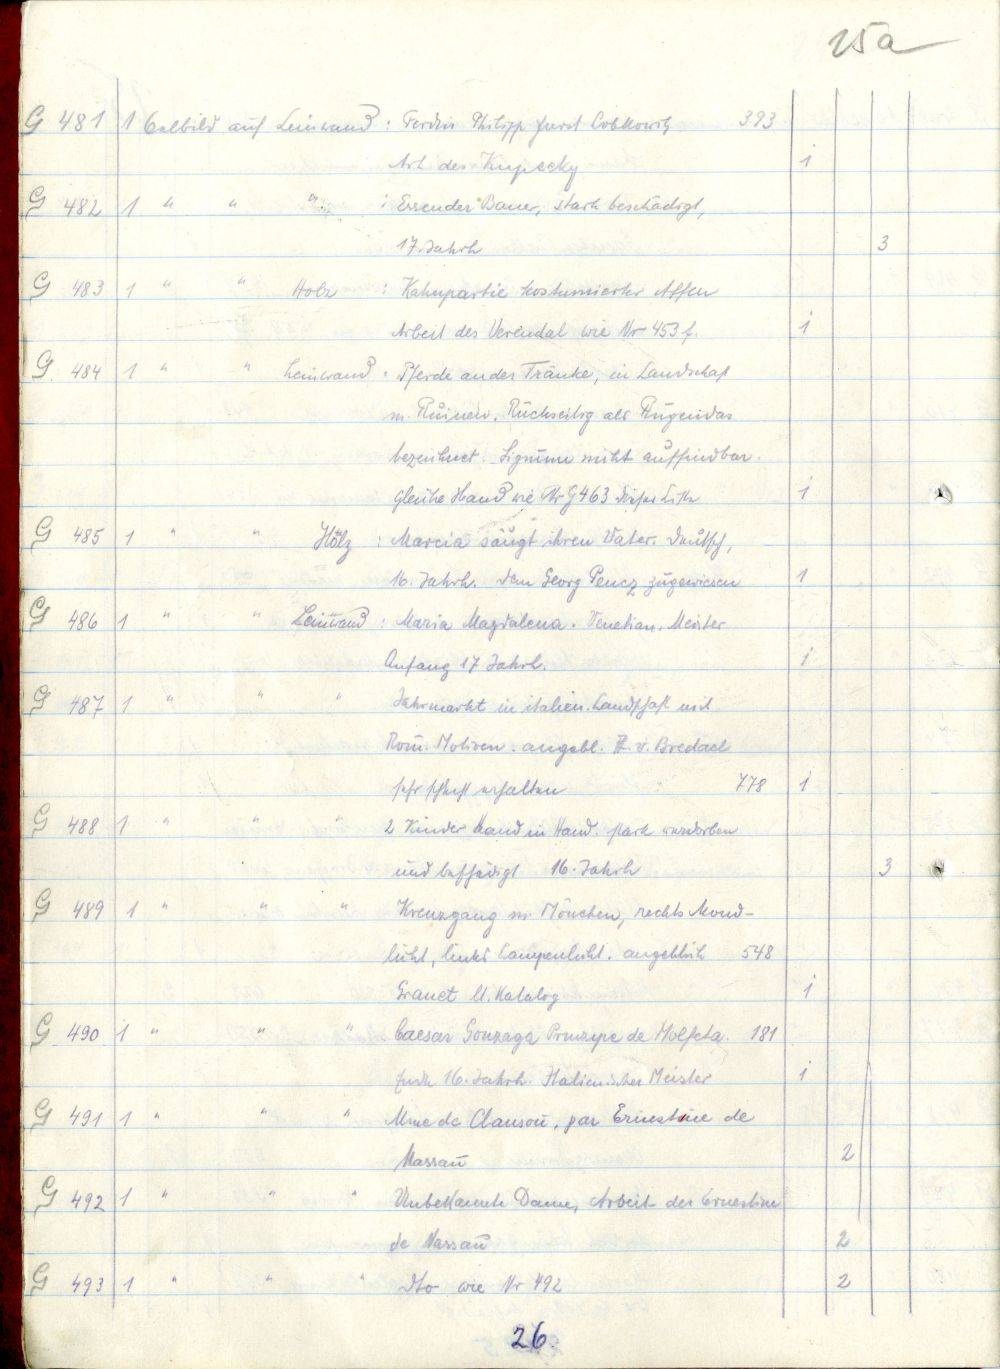 25a
G 481 1 Oelbild auf Leinwand : Ferdin Philipp Fürst Lobkowitz 393
Art des Kupecky 1
G 482 1 " " " : Essender Bauer, stark beschädigt,
17. Jahrh 3
G 483 1 " " Holz : Kahnpartie kostümierter Affen
Arbeit des Verendal wie Nr 453 f. 1
G 484 1 " " Leinwand : Pferde an der Tränke, in Landschaft
m. Ruinen. Rückseitig als Rugendas
bezeichnet. Signum nicht auffindbar.
Gleiche Hand wie Nr G 463 dieser Liste 1
G 485 1 " " Holz : Marcia säugt ihren Vater. Deutsch,
16. Jahrh. dem Georg Pencz zugewiesen 1
G 486 1 " " Leinwand : Maria Magdalena. Venetian. Meister
Anfang 17 Jahrh. 1
G 487 1 " " " Jahrmarkt in italien. Landschaft mit
Röm. Motiven. angebl. v. Bredael
sehr schlecht erhalten 778 1
G 488 1 " " " 2 Kinder Hand in Hand. stark verdorben
und beschädigt 16. Jahrh 3
G 489 1 " " " Kreuzgang m. Mönchen, rechts Mond-
licht, links Lampenlicht. angeblich 548
Granet lt. Katalog 1
G 490 1 " " " Caesar Gonzaga Principe de Molfeta. 181
Ende 16. Jahrh. Italienischer Meister 1
G 491 1 " " " Mme de Clanson, par Ernestine de
Nassau 2
G 492 1 " " " Unbekannte Dame, Arbeit der Ernestine
de Nassau 2
G 493 1 " " " dto wie Nr 492 2
26